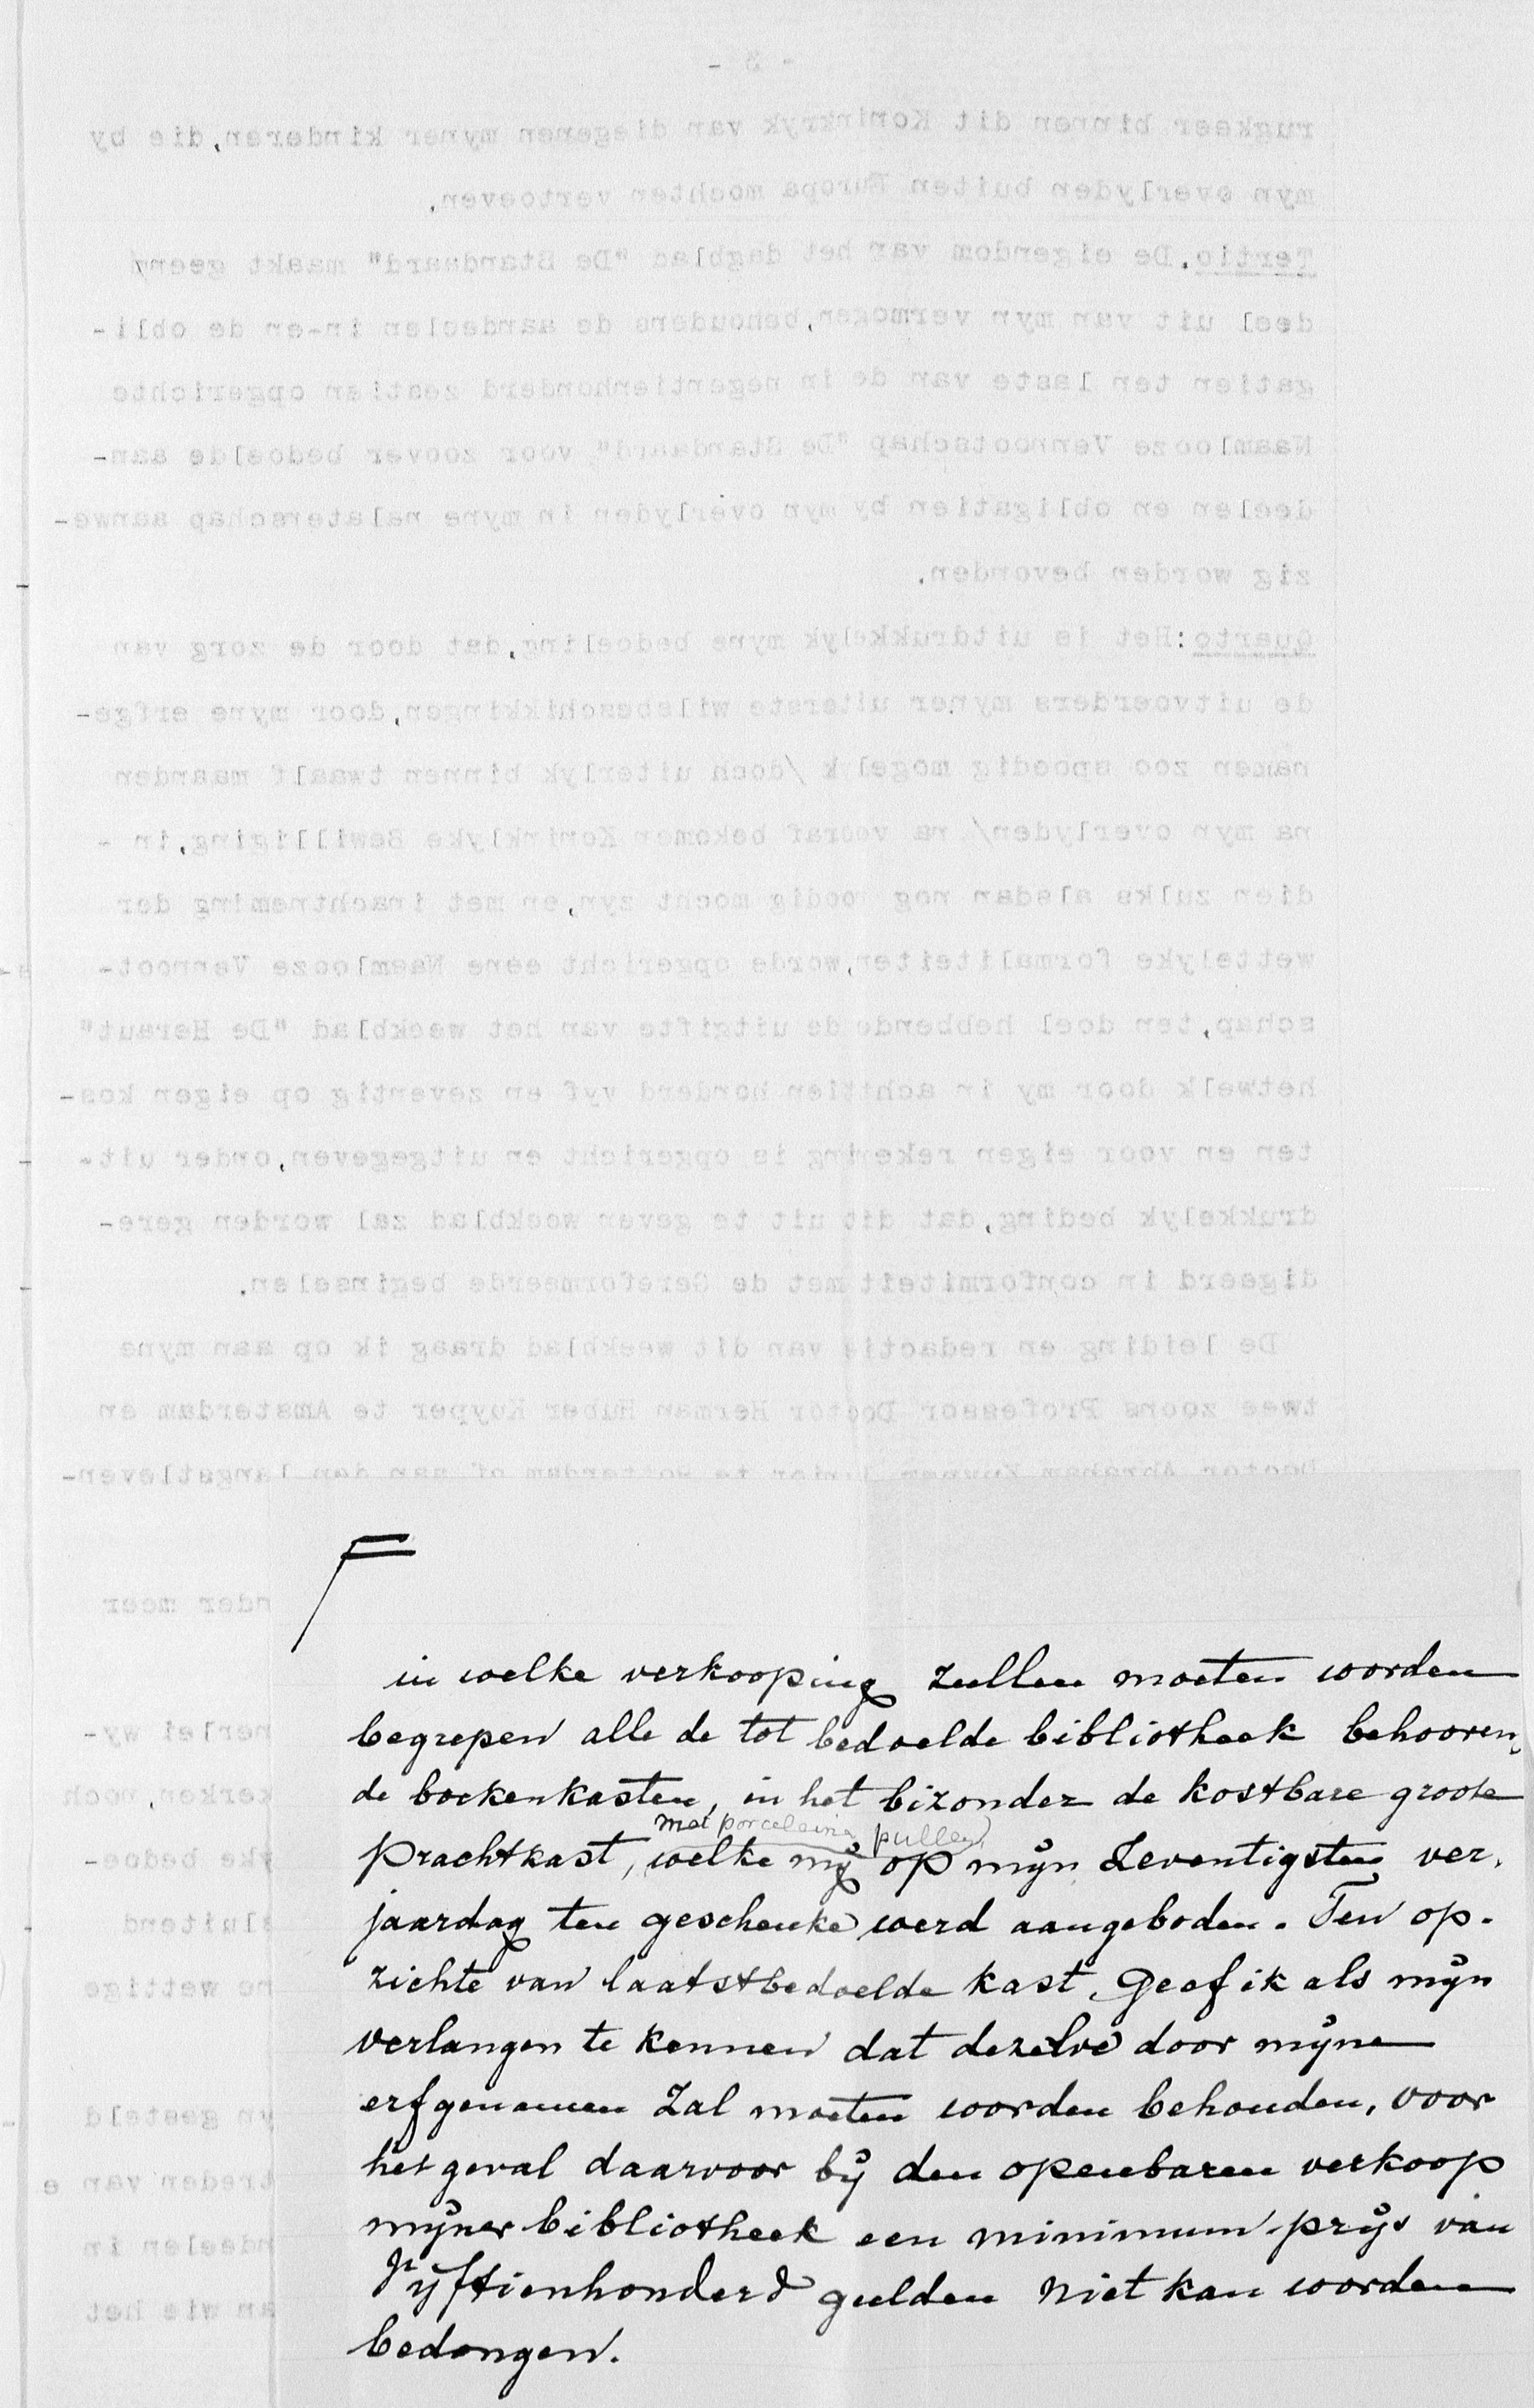 - 3 -
rugkeer binnen dit Koninkryk van diegenen myner kinderen,die by
myn overlyden buiten Europa mochten vertoeven.
Tertio.De eigendom van het dagblad "De Standaard" maakt geen
deel uit van myn vermogen,behoudens de aandeelen in-en de obli-
gatien ten laste van de in negentienhonderd zestien opgerichte
Naamlooze Vennootschap "De Standaard" voor zoover bedoelde aan-
deelen en obligatien by myn overlyden in myne nalatenschap aanwe-
zig worden bevonden.
Quarto:Het is uitdrukkelyk myne bedoeling,dat door de zorg van
de uitvoerders myner uiterste wilsbeschikkingen,door myne erfge-
namen zoo spoedig mogelyk /doch uiterlyk binnen twaalf maanden
na myn overlyden/ na vooraf bekomen Koninklyke Bewilliging,in -
dien zulks alsdan nog noodig mocht zyn,en met inachtneming der
wettelyke formaliteiten,worde opgericht eene Naamlooze Vennoot-
schap,ten doel hebbende de uitgifte van het weekblad "De Heraut"
hetwelk door my in achttien honderd vyf en zeventig op eigen kos-
ten en voor eigen rekening is opgericht en uitgegeven,onder uit-
drukkelyk beding,dat dit uit te geven weekblad zal worden gere-
digeerd in conformiteit met de Gereformeerde beginselen.
De leiding en redactie van dit weekblad draag ik op aan myne
twee zoons Professor Doctor Herman Huber Kuyper te Amsterdam en
Doctor Abraham Kuyper Junior te Rotterdam of aan den langstleven-
nder meer
nerlei wy-
kerken,noch
yke bedoe-
sluitend
ne wettige
yn gesteld
treden van e
ndeelen in
an wie het
in welke verkooping zullen moeten worden
begrepen alle de tot bedoelde bibliotheek behooren-
de boekenkasten, in het bizonder de kostbare groote
met porceleine pullen
prachtkast, welke mij op mijn Zeventigsten ver-
jaardag ten geschenke werd aangeboden. Ten op-
zichte van laatstbedoelde kast, geef ik als mijn
verlangen te kennen dat dezelve door mijne
erfgenamen zal moeten worden behouden, voor
het geval daarvoor bij den openbaren verkoop
mijner bibliotheek een minimum-prijs van
Vijftienhonderd gulden niet kan worden
bedongen.